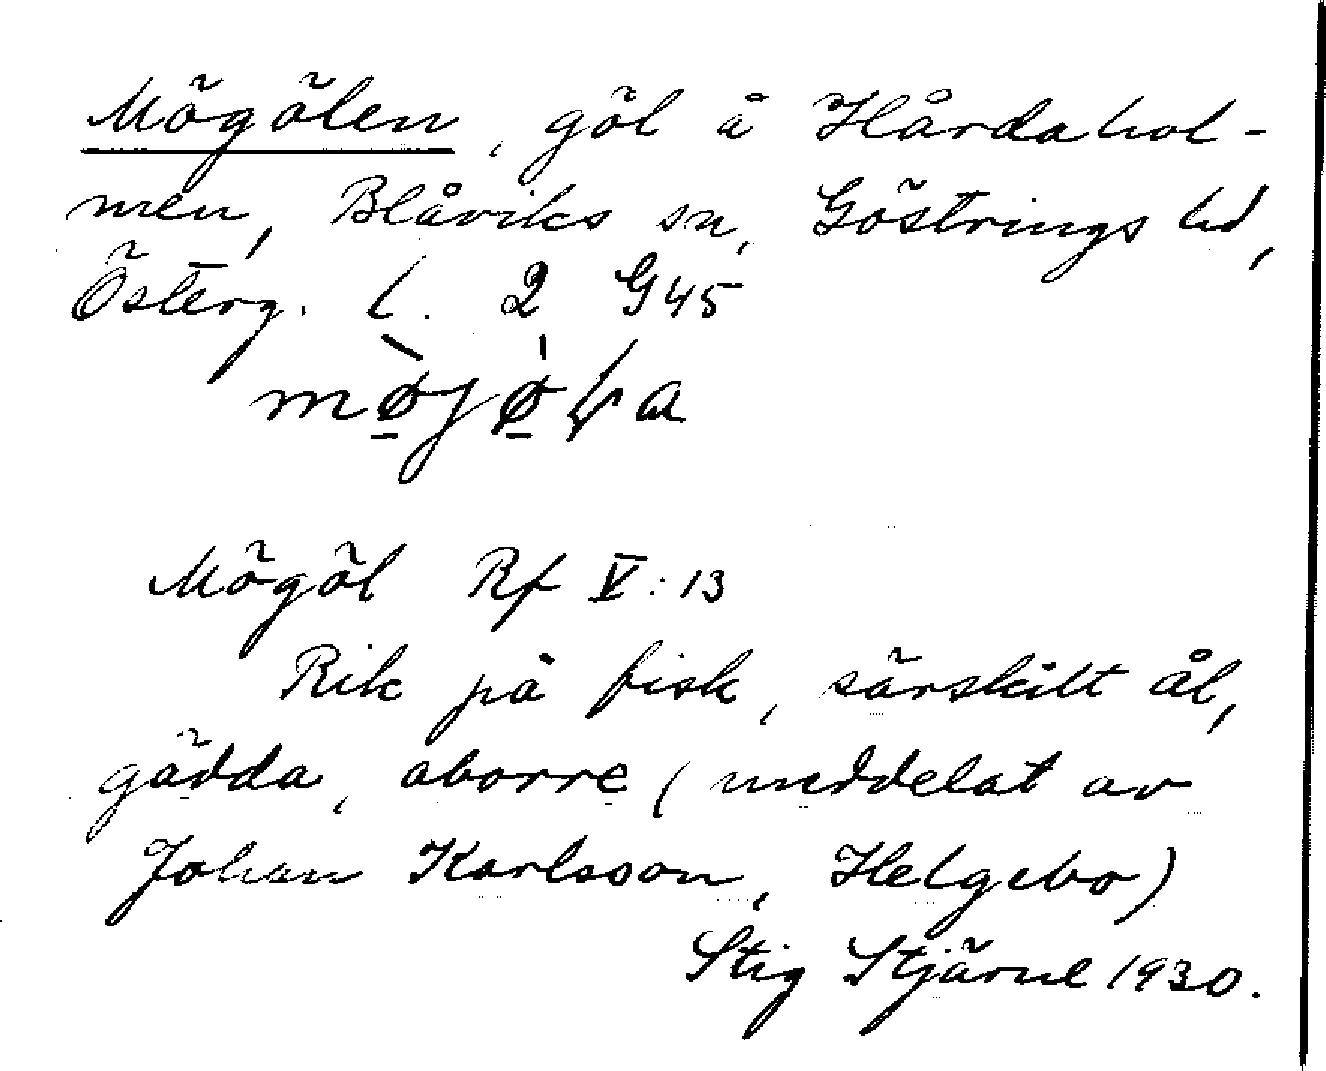 Mögölen, göl å Hårdahol-
men, Blåviks sn, Göstrings hd,
Österg. l. 2 G45
mø̠̀jǿ̠ɽa
Mögöl Rf V:13
Rik på fisk, särskilt ål,
gädda, aborre (meddelat av
Johan Karlsson, Helgebo)
Stig Stjärne 1930.